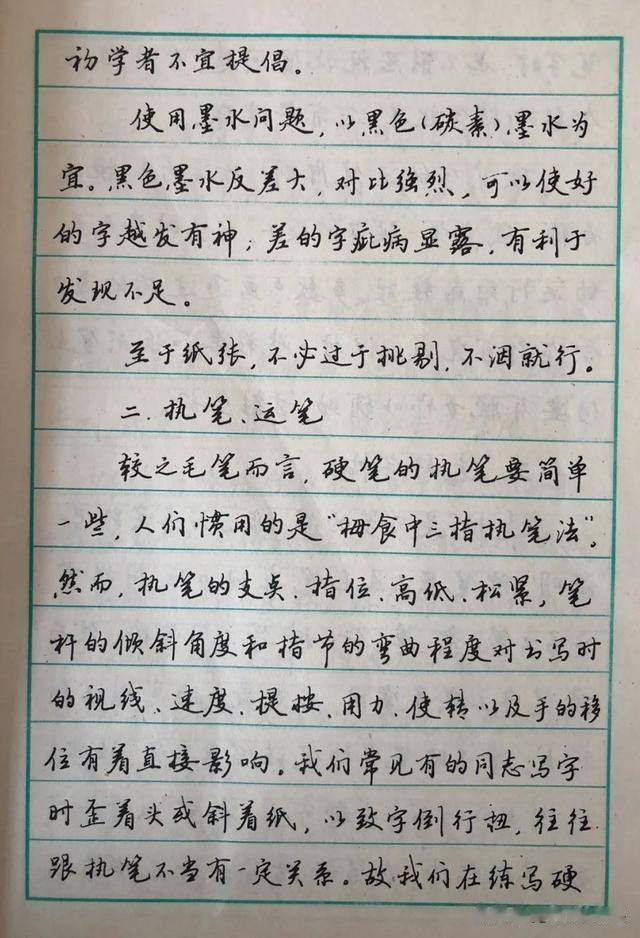 初学者不宜提倡。
使用墨水问题，以黑色（碳素）墨水为
宜。黑色墨水反差大，对比强烈，可以使好
的字越发有神；差的字疵病显露，有利于
发现不足。
至于纸张，不必过于挑剔，不洇就行。
二．执笔、运笔
较之毛笔而言，硬笔的执笔要简单
一些，人们惯用的是“拇食中三指执笔法”。
然而，执笔的支点、指位、高低、松紧，笔
杆的倾斜角度和指节的弯曲程度对书写时
的视线、速度、提按、用力、使转以及手的移
位有着直接影响。我们常见有的同志写字
时歪着头或斜着纸，以致字倒行扭，往往
跟执笔不当有一定关系。故我们在练写硬